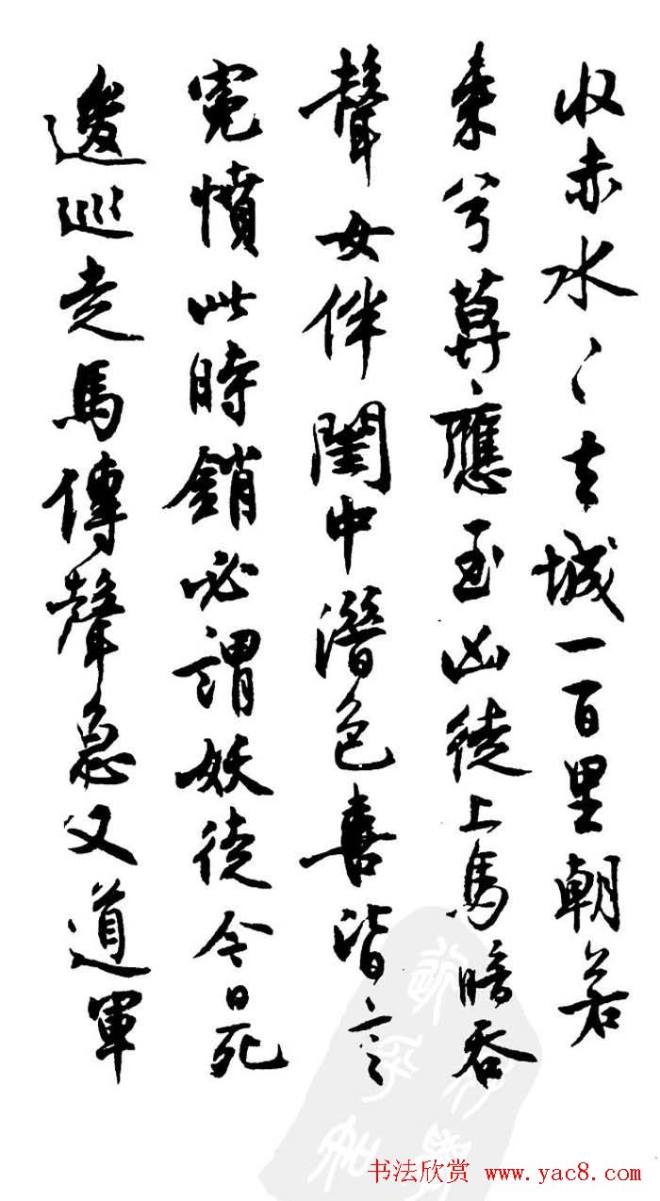 收赤水〻去城一百里朝若
來兮暮應至凶徒上馬暗吞
聲女伴閨中潛色喜皆言
冤憤此時銷必謂妖徒今日死
逡巡走馬傳聲急又道軍
书法欣赏 www.yac8.com